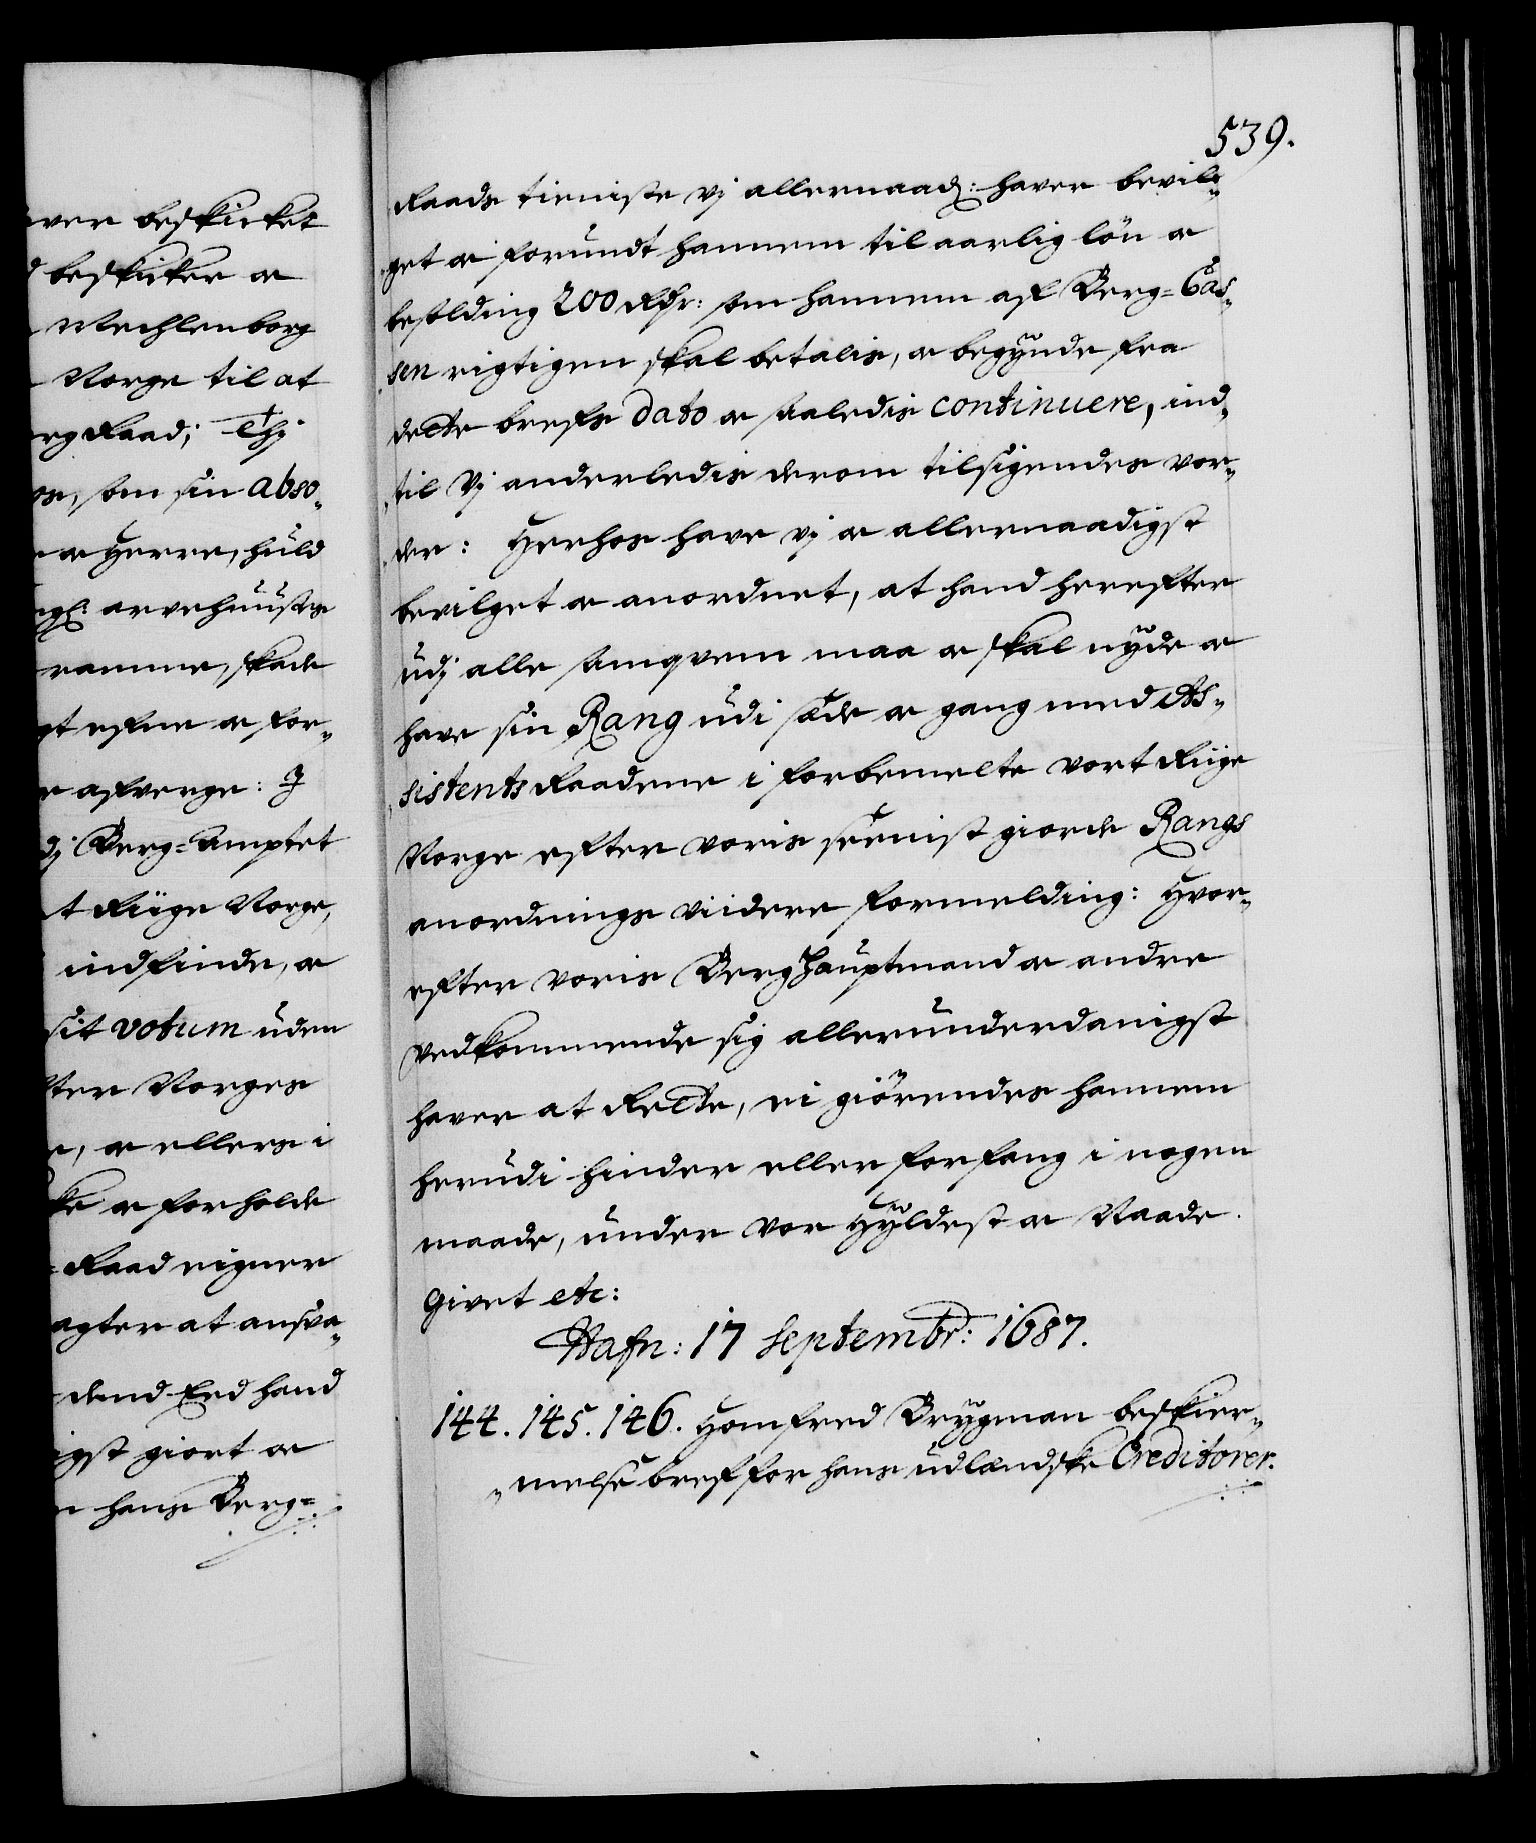 ver beskicket
beskicker oc
Mechlenborg
Norge til at
erg Raad; Thj
os, som sin abso„
oc Herre, huld
ngl: arvehuusts
ramme, skade
gt efne oc for„
afverge: J
dj Berg=Amptet
t Riige Norge,
indfinde, oc
sit votum uden
ter Norges
, oc ellers i
ke oc forholde
Raad eigner
agter at ansva„
dend Eed hand
igst giort oc
hans Berg=
539.
Raads tieniste vj allernaad: haver bevil„
„get oc forundt hannem til aarlig lön oc
besolding 200 Rdr: som hannem af Berg=Cas„
„sen rigtigen skal betalis, oc begynde fra
dette brefs dato oc saaledis continuere, ind„
„til Vj anderledis derom tilsigendes vor„
„der: Herhos have vj oc allernaadigst
bevilget oc anordnet, at hand herefter
udj alle samqvem maa oc skal nyde oc
have sin Rang udi sæde oc gang med As„
„sistents Raadene i forbemelte vort Riige
Norge efter voris seenist giorde Rangs
anordnings viidere formelding: Hvor„
efter voris Berghauptmand oc andre
vedkommende sig allerunderdanigst
haver at Rette, ei giörendes hannem
herudi hinder eller forfang i nogen
maade, under vor Hyldest oc Naade.
Givet etc:
Hafn: 17 Septembr: 1687.
144. 145. 146. Homfred Brygman beskier„
„melse bref for hans udlændske Creditorer.